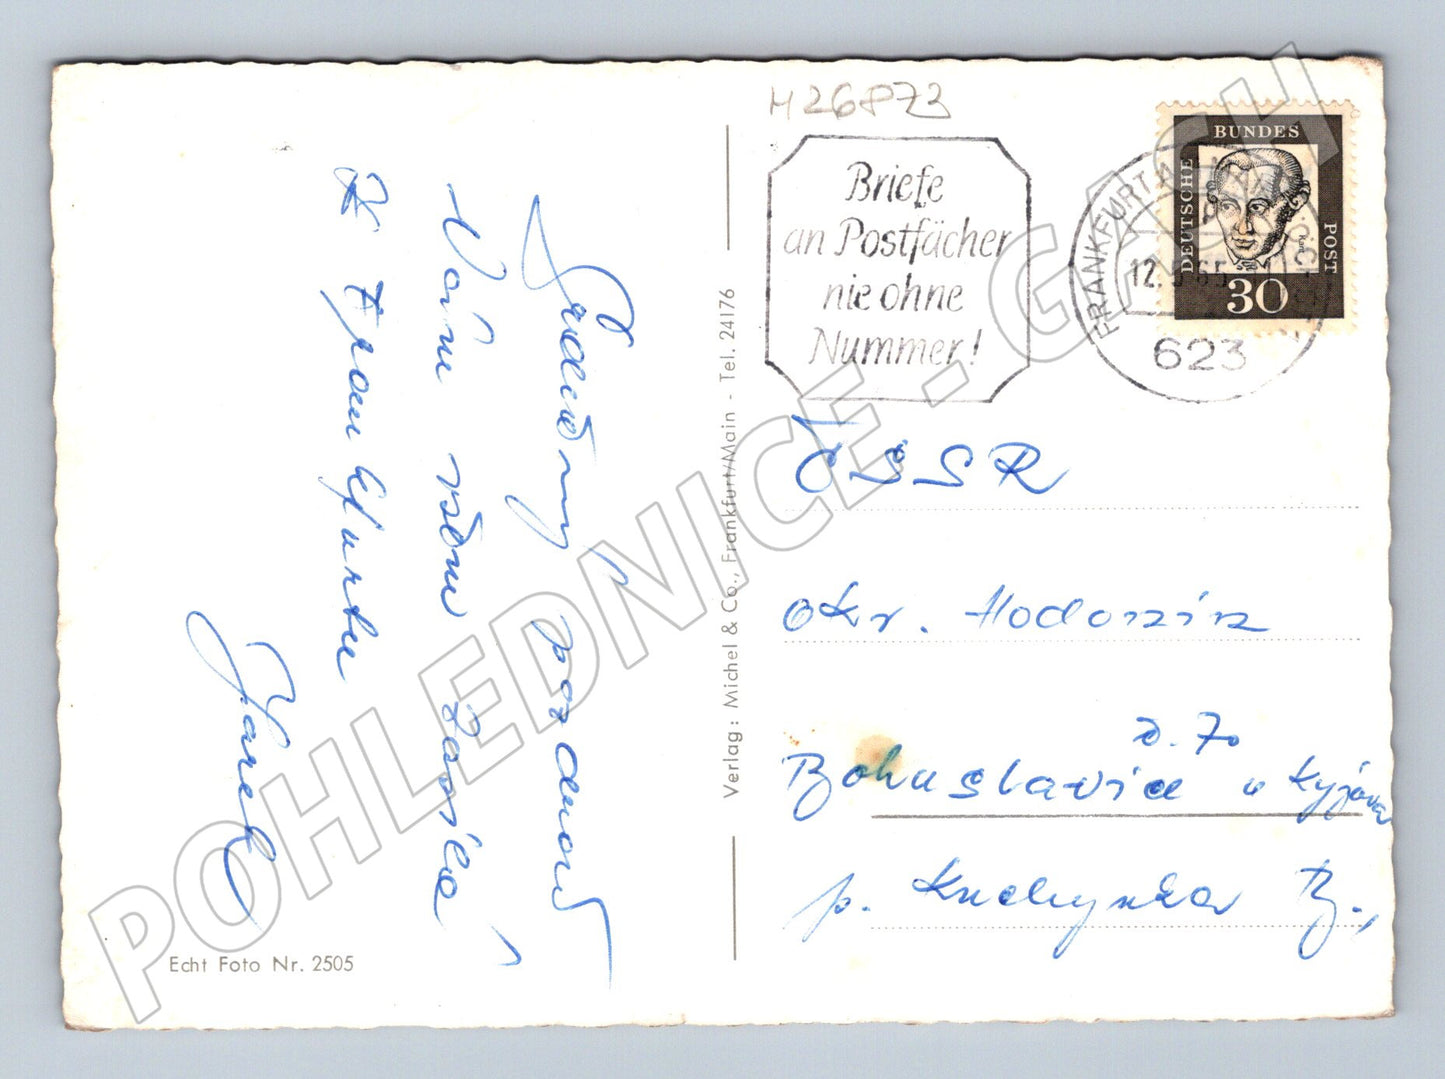 H 26873
Briefe
an Postfächer
nie ohne
Nummer!
FRANKFURT AM
12. 65
623
DEUTSCHE
BUNDES
POST
Kant
30
Srdečný pozdrav
Vám všem zasílá
z Frankfurtu
Karel
Echt Foto Nr. 2505
Verlag: Michel & Co., Frankfurt/Main - Tel. 24176
ČSSR
okr. Hodonín
č. 70
Bohuslavice u Kyjova
p. Kuchynka B.,
POHLEDNICE - GASH